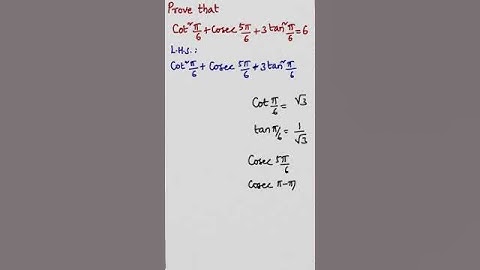 Prove that
Cot²π/6 + Cosec 5π/6 + 3 tan²π/6 = 6
L.H.S.:
Cot²π/6 + Cosec 5π/6 + 3 tan²π/6
Cot π/6 = √3
tan π/6 = 1/√3
Cosec 5π/6
Cosec π-π